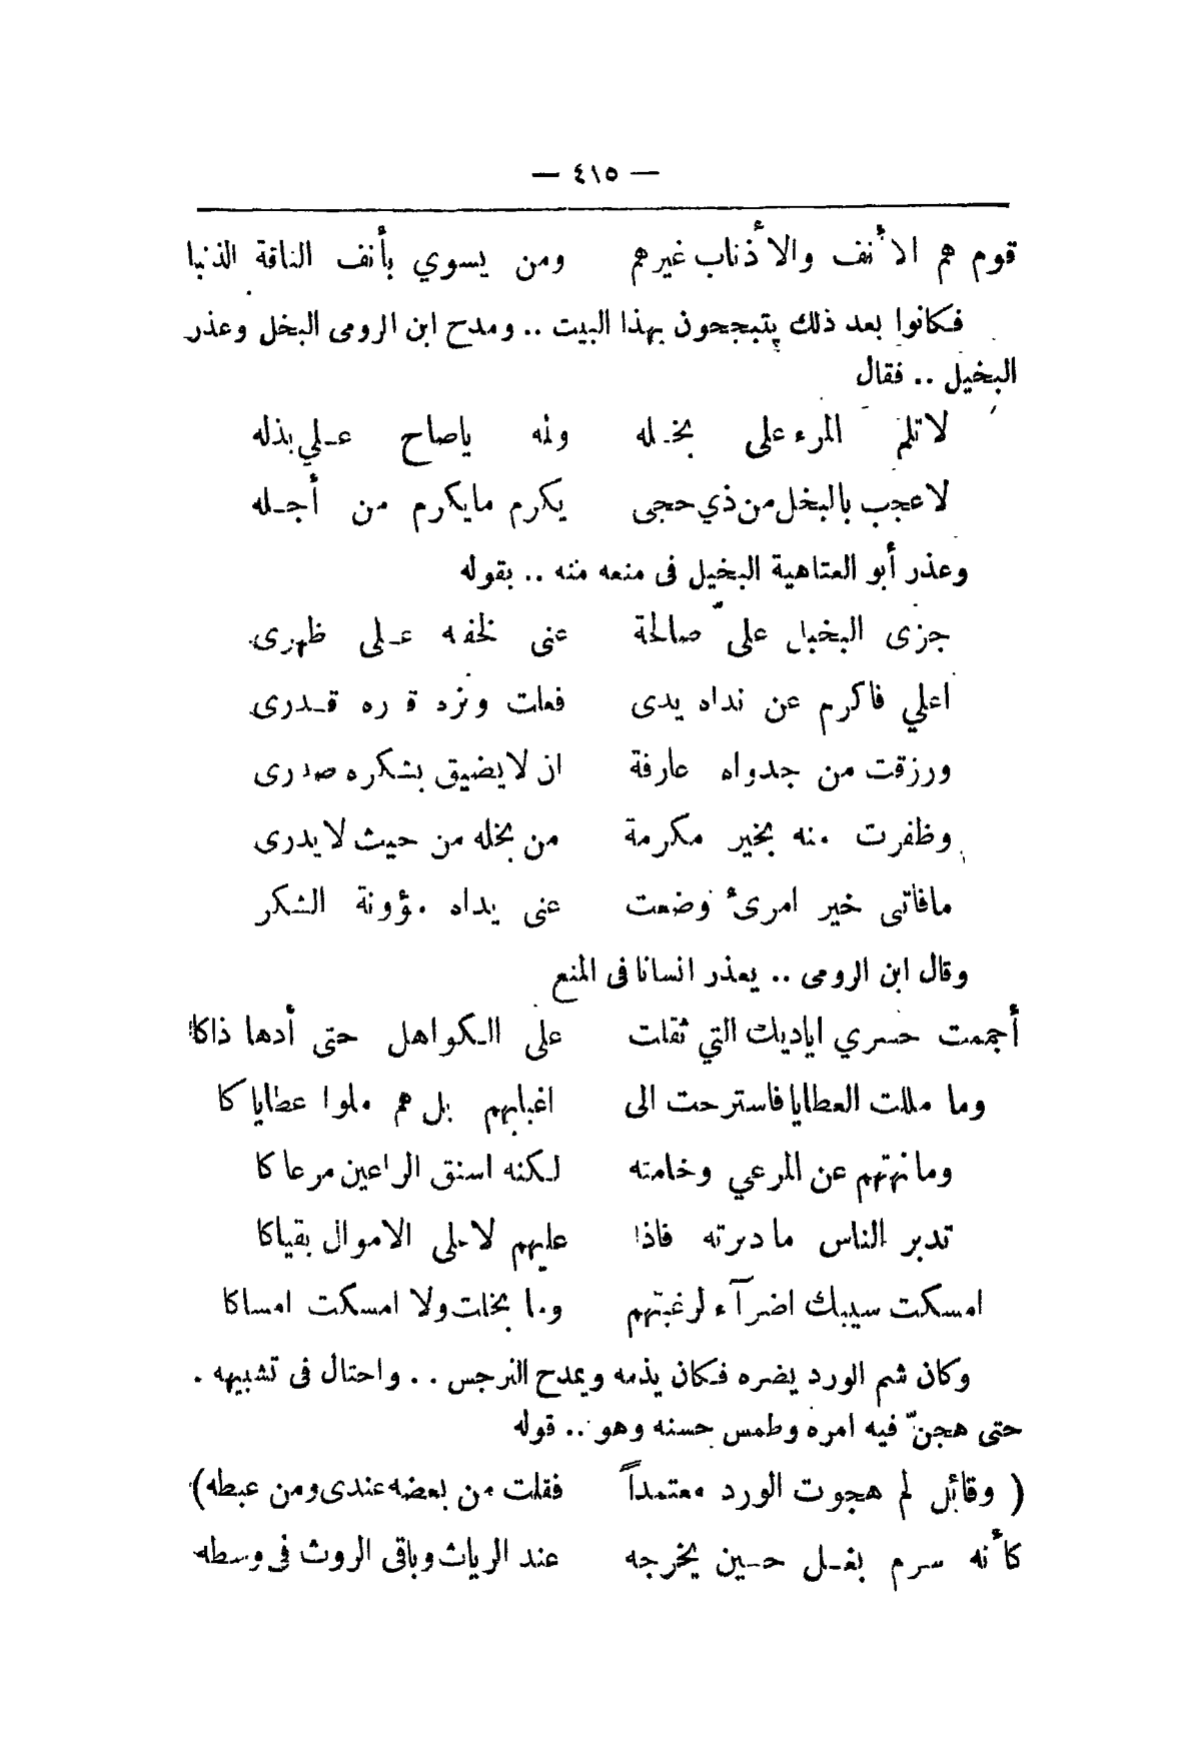 — ٤١٥ —
قوم هم الأنف والأذناب غيرهم ومن يسوي بأنف الناقة الذنبا
فكانوا بعد ذلك يتبجحون بهذا البيت .. ومدح ابن الرومى البخل وعذر
البخيل .. فقال
لا تلم المرء على بخله ولمه ياصاح على بذله
لاعجب بالبخل من ذي حجى يكرم مايكرم من أجله
وعذر أبو العتاهية البخيل فى منعه منه .. بقوله
جزى البخيل علىّ صالحة عنى لخفه على ظهرى
اعلي فاكرم عن نداه يدى فعلت ونزه قدره قدرى
ورزقت من جدواه عارفة ان لايضيق بشكره صدرى
وظفرت منه بخير مكرمة من بخله من حيث لايدرى
مافاتى خير امرئ وضعت عنى يداه مؤونة الشكر
وقال ابن الرومى .. يعذر انسانا فى المنع
أجممت حسري اياديك التي ثقلت على الكواهل حتى أدها ذاكا
وما مللت العطايا فاسترحت الى اغبابهم بل هم ملوا عطاياكا
وما نهتهم عن المرعي وخامته لكنه اسنق الراعين مرعاكا
تدبر الناس ما دبرته فاذا عليهم لا على الاموال بقياكا
امسكت سيبك اضرآء لرغبتهم وما بخلت ولا امسكت امساكا
وكان شم الورد يضره فكان يذمه ويمدح النرجس .. واحتال فى تشبيهه .
حتى هجنّ فيه امره وطمس حسنه وهو .. قوله
( وقائل لم هجوت الورد معتمداً فقلت من بعضه عندى ومن عبطه)
كأنه سرم بغل حين يخرجه عند الرياث وباقى الروث فى وسطه